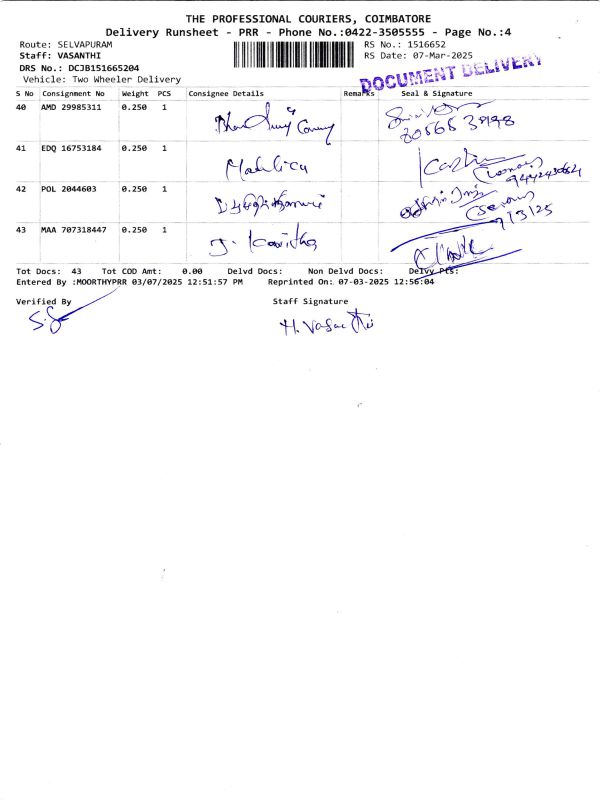 THE PROFESSIONAL COURIERS, COIMBATORE
Delivery Runsheet - PRR - Phone No.:0422-3505555 - Page No.:4
Route: SELVAPURAM
RS No.: 1516652
Staff: VASANTHI
RS Date: 07-Mar-2025
DRS No.: DCJB151665204
DOCUMENT DELIVERY
Vehicle: Two Wheeler Delivery
S No Consignment No Weight PCS Consignee Details Remarks Seal & Signature
40 AMD 29985311 0.250 1
41 EDQ 16753184 0.250 1
42 POL 2044603 0.250 1
7/3/25
43 MAA 707318447 0.250 1 J. Kavitha
Tot Docs: 43 Tot COD Amt: 0.00 Delvd Docs: Non Delvd Docs: Delvy Pcs:
Entered By :MOORTHYPRR 03/07/2025 12:51:57 PM Reprinted On: 07-03-2025 12:56:04
Verified By Staff Signature